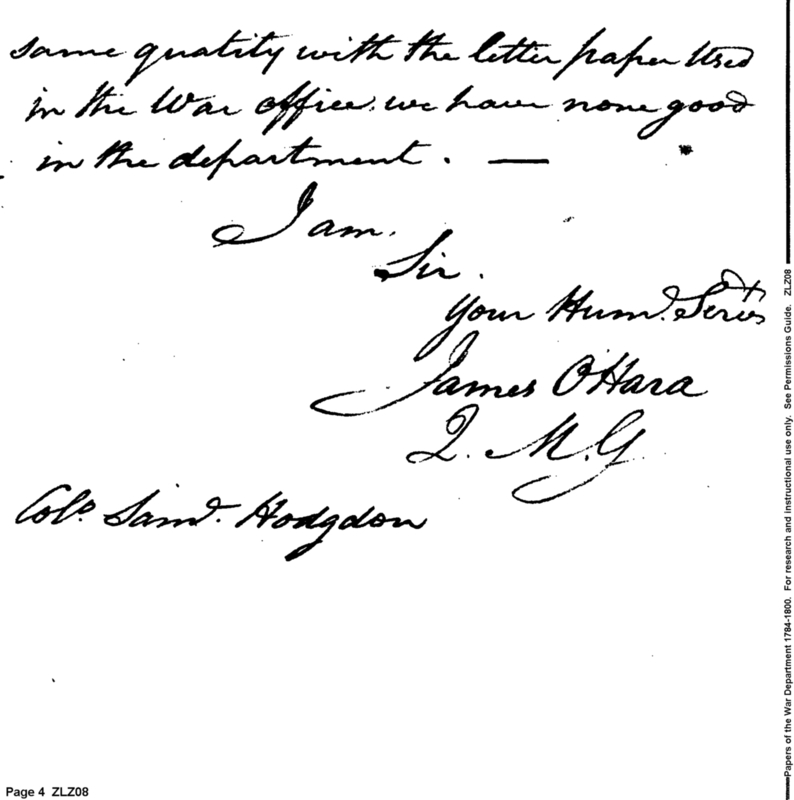 same quatity with the letter paper Used
in the War office. we have none good
in the department. —
I am.
Sir.
your Humd. Servt
James OHara
Q. M. G
Colo. Samd. Hodgdon
Page 4 ZLZ08
Papers of the War Department 1784-1800. For research and instructional use only. See Permissions Guide. ZLZ08